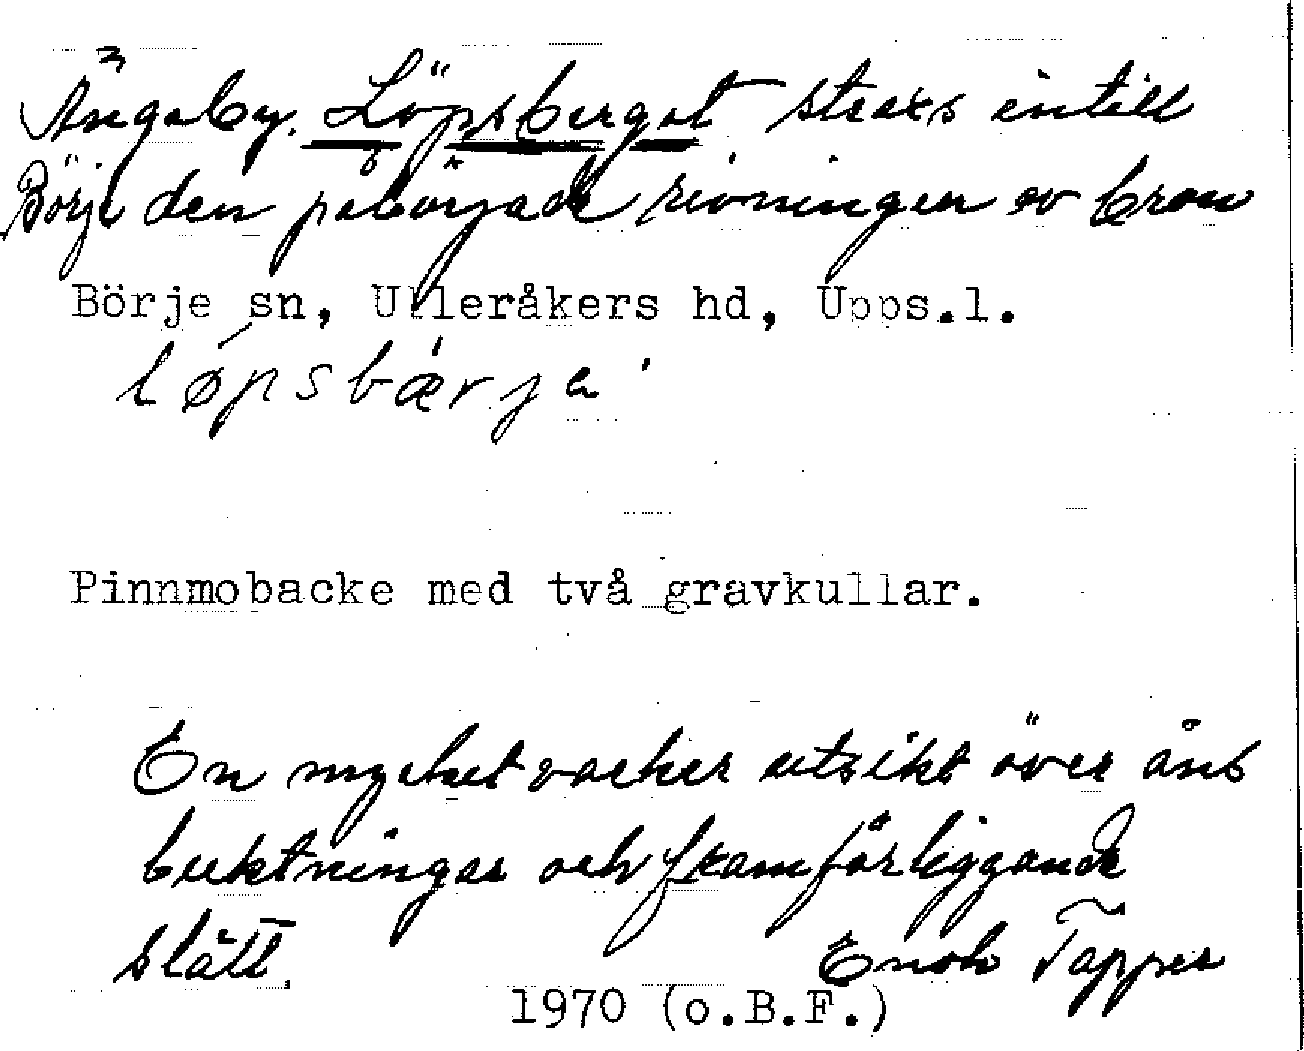 Ängeby. Löpsberget strax intill
Börje den påbörjade rivningen av bron
Börje sn, Ulleråkers hd, Upps.l.
løpsbærja
Pinnmobacke med två gravkullar.
En mycket vacker utsikt över åns
buktningar och framförliggande
slätt.
Enok Tapper
1970 (o.B.F.)